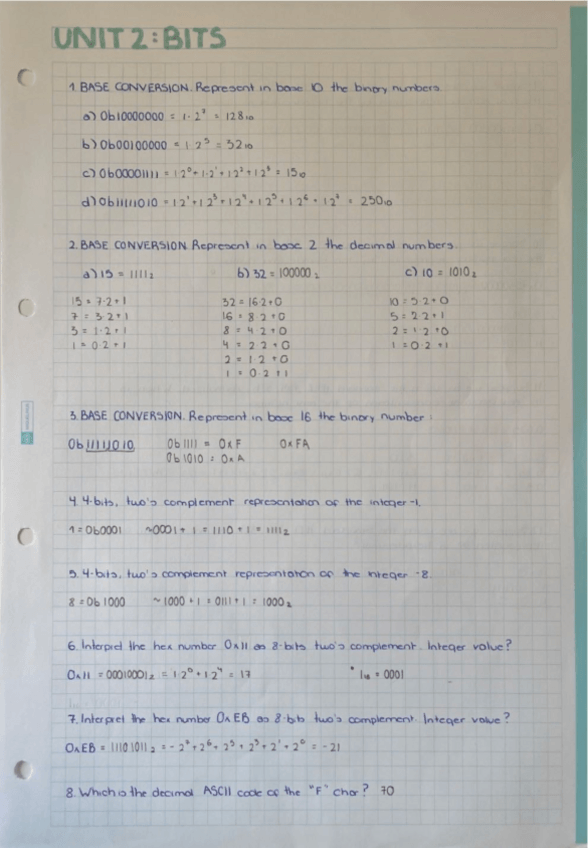 UNIT 2: BITS
1. BASE CONVERSION. Represent in base 10 the binary numbers.
a) 0b10000000 = 1·2⁷ = 128₁₀
b) 0b00100000 = 1·2⁵ = 32₁₀
c) 0b00001111 = 1·2⁰ + 1·2¹ + 1·2² + 1·2³ = 15₁₀
d) 0b11111010 = 1·2¹ + 1·2³ + 1·2⁴ + 1·2⁵ + 1·2⁶ + 1·2⁷ = 250₁₀
2. BASE CONVERSION. Represent in base 2 the decimal numbers.
a) 15 = 1111₂ b) 32 = 100000₂ c) 10 = 1010₂
15 = 7·2+1 32 = 16·2+0 10 = 5·2+0
7 = 3·2+1 16 = 8·2+0 5 = 2·2+1
3 = 1·2+1 8 = 4·2+0 2 = 1·2+0
1 = 0·2+1 4 = 2·2+0 1 = 0·2+1
2 = 1·2+0
1 = 0·2+1
3. BASE CONVERSION. Represent in base 16 the binary number:
0b11111010 0b1111 = 0xF 0xFA
0b1010 = 0xA
4. 4-bits, two's complement representation of the integer -1.
1 = 0b0001 ~0001 + 1 = 1110 + 1 = 1111₂
5. 4-bits, two's complement representation of the integer -8.
8 = 0b1000 ~1000 + 1 = 0111 + 1 = 1000₂
6. Interpret the hex number 0x11 as 8-bits two's complement. Integer value?
0x11 = 00010001₂ = 1·2⁰ + 1·2⁴ = 17 * 1₁₆ = 0001
7. Interpret the hex number 0xEB as 8-bits two's complement. Integer value?
0xEB = 11101011₂ = -2⁷ + 2⁶ + 2⁵ + 2³ + 2¹ + 2⁰ = -21
8. Which is the decimal ASCII code of the "F" char? 70